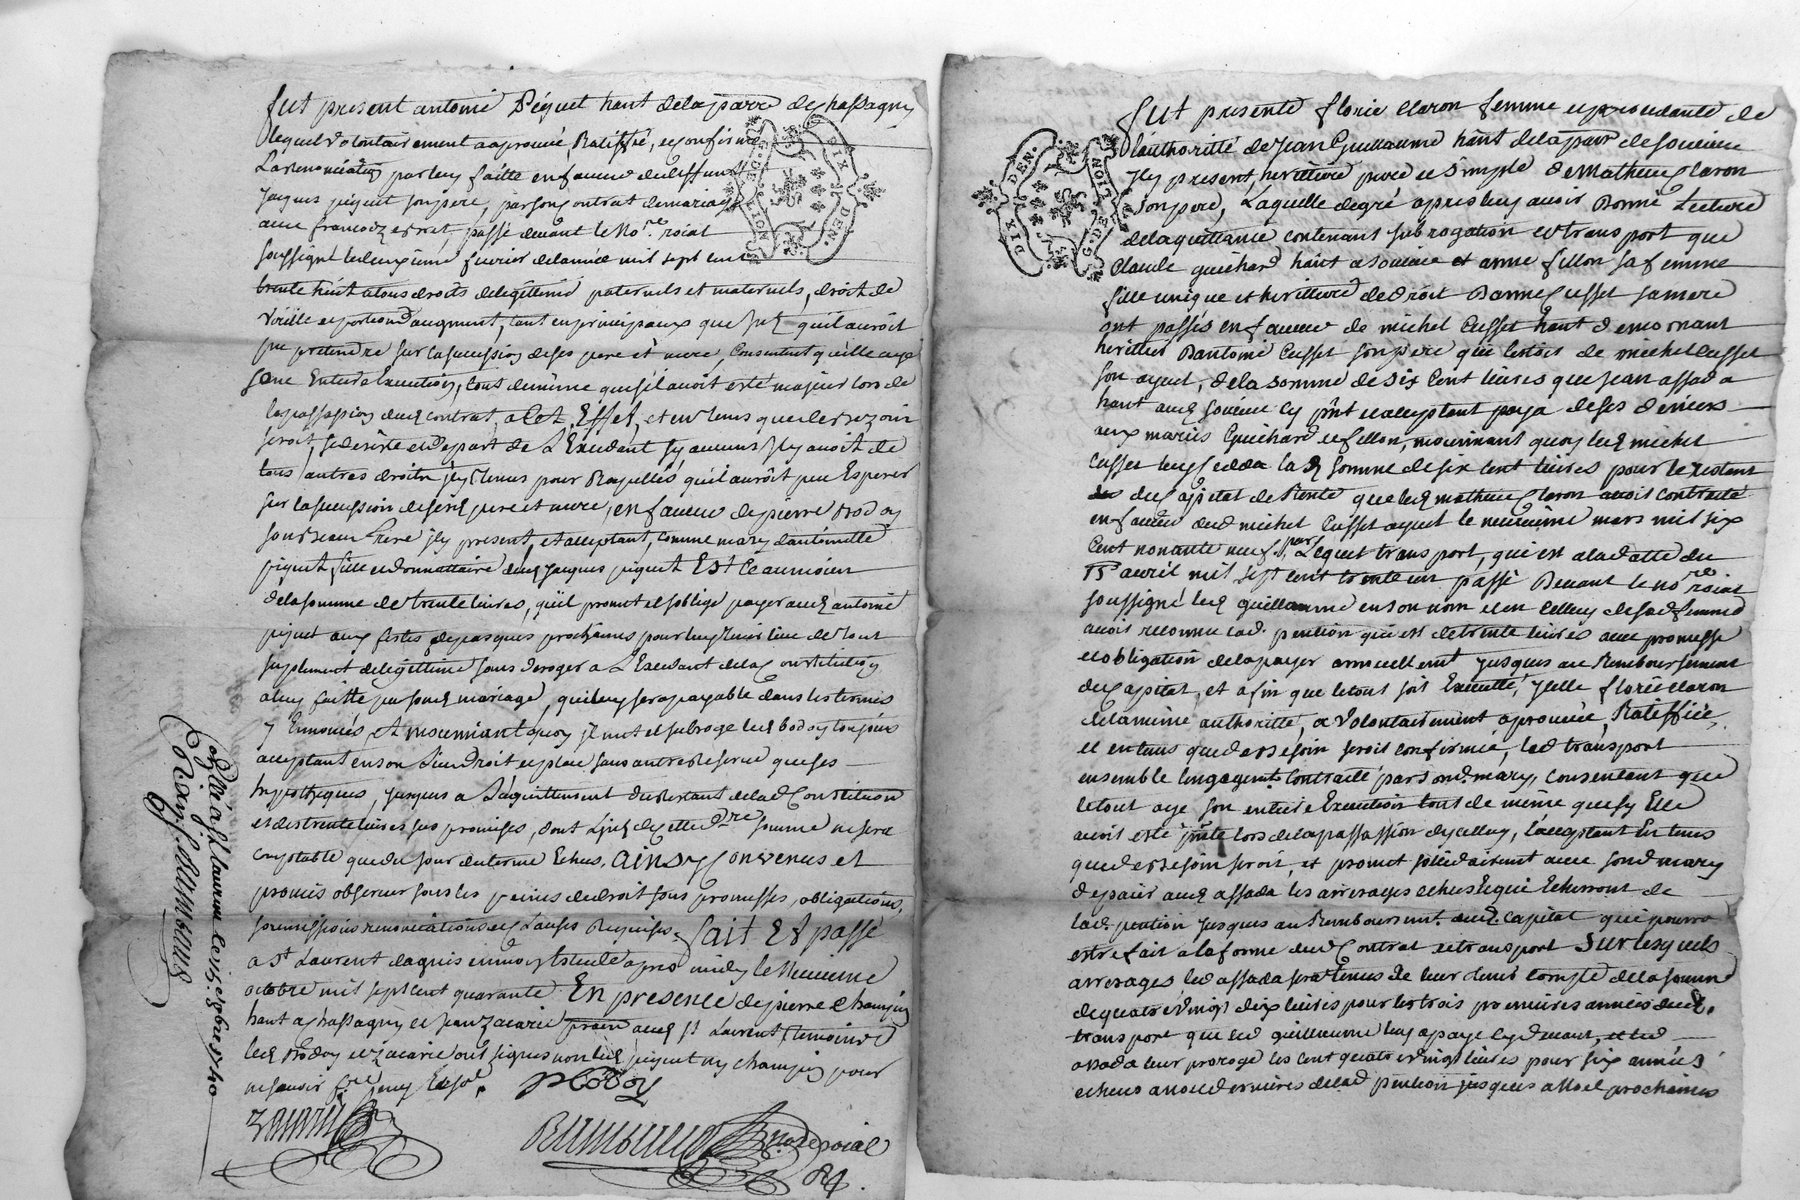 fut present antoine Péguet hant de la parre de chassagny
lequel volontairement a aprouvé, Ratiffié, et confirmé
La renonciation par luy faitte en faveur de deffunt
Jacques piguet son pere, par son contrat de mariage
avec françoize, passé devant le No.re roial
soussigné le deuxieme fevrier de lannée mil sept cent
trente huit a tous droits de legittime paternels et maternels, droit de
augment, tant en principaux que qu'il auroit
pu pretendre sur la succession de ses pere et mere, Consentant qu'elle aye
son Entiere Execution, tout de même que s'il avoit esté majeur lors de
la passassion dud contrat, a Cet Effet, et en tems que de bezoin
seroit, se desiste et depart de L'Exedant sy aucuns y avoit de
tous autres droits pour Rayelles qu'il auroit peu Esperer
sur la succession de sesd pere et mere, en faveur de pierre Boday
son beau frere icy present, et acceptant, comme mary d'antoinette
piguet fille et donnattaire dud Jacques piguet Est Ce aumoien
de la somme de trente livres, qu'il promet et s'oblige payer aud antoine
piguet aux festes de pasques prochaines pour luy tenir lieu de tout
suplement de legittime sans deroger a L'Exedant de la Constitution
a luy faitte par sond mariage, qui luy sera payable dans les termes
y Ennoncés, Et moyenniant quoy il met et subroge led boday toujours
acceptant en son Lieu droit et place sans autre Reserve que ses
hypotheques, jusques a L'aquittement du Restant de lad Constitution
et des trente livres sus promises, dont de cette d.re somme ne sera
comptable que du jour du terme Echus, AINSY Convenus et
promis observer sous les peines de droit sous promesses, obligations,
soumissions renonciations et Clauses Requises. fait Et passé
a St Laurent dagnis en mon Estude apres midy le Neuvieme
octobre mil sept cent quarante. En presence de pierre Champin
hant a chassagny et jean zacarie aud St Laurent temoins
led Boday et zacarie ont signés non led piguet ny champin pour
ne savoir
PBoday
Zacarie
No.re roial
Collé a St laurent le 15.e 8bre 1740
fut presente florie Claron femme et procedante de
l'authoritté de Jean Guillaume hant de la parre de soucieu
Icy present, herittiere pure et simple de Mathieu Claron
son pere, Laquelle de gré apres luy avoir Donné Lecture
de la quittance contenant subrogation et transport que
Claude guichard hant a soucieu et anne fillon sa femme
fille unique et herittiere de droit Danne Cusset sa mere
ont passés en faveur de michel Cusset hant de mornant
herittier Dantoine Cusset son pere qui l'estoit de michel Cusset
son ayeul, de la somme de six Cent livres que jean assada
hant aud soucieu Cy pnt et acceptant paya de ses deniers
aux mariés Guichard et fillon, moiennant quoy led michel
Cusset luy cedda lad somme de six cent livres pour le restant
du Capital de Rente que led mathieu Claron avoit contracté
en faveur dud michel Cusset ayeul le neuvieme mars mil six
Cent nonante neuf, par Lequel transport, qui est a la datte du
15 avril mil sept cent trente un passé Devant le No.re roial
soussigné led guillaume en son nom et en Celluy de sad femme
avoit reconnu lad. pention qui est de trente livres avec promesse
et obligation de la payer annuellement jusques au Remboursement
du Capital, et afin que le tout soit Executté, Icelle florie Claron
de la même authoritté, a Volontairement aprouvée, Ratiffiée,
et en tems que de besoin seroit confirmée, led transport
ensemble l'engagemt. Contracté par sond. mary, consentent que
le tout aye son entiere Execution tout de même que sy Elle
avoit esté pnte lors de la passassion dycelluy, l'acceptant En tems
que de besoin seroit, et promet solidairement avec sond mary
de paier aud assada les arrerages echus Et qui Echerront de
lad pention jusques au Remboursemt. dud. Capital qui pourra
estre fait a la forme dud Contrat et transport SUR lesquels
arrerages led assada sera tenus de leur tenir compte de la somme
de quatre vingt dix livres pour les trois premieres années dud.
transport que led guillaume luy a paye Cy devant, et led
assada leur proroge les cent quatre vingt livres pour six années
echeus a noel dernieres de lad pention jusques a Noel prochaines